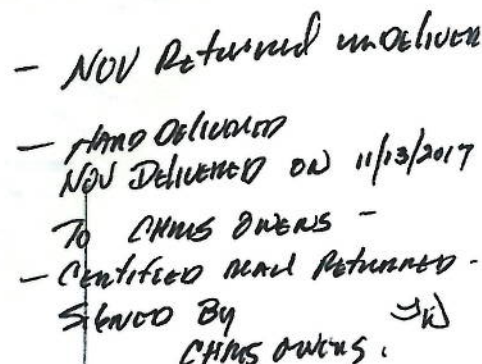 - NOV Returned unDELIVER
- HAND DELIVERED
NOV DELIVERED ON 11/13/2017
To CHRIS OWENS -
- CERTIFIED MAIL RETURNED -
SIGNED By
CHRIS OWENS.